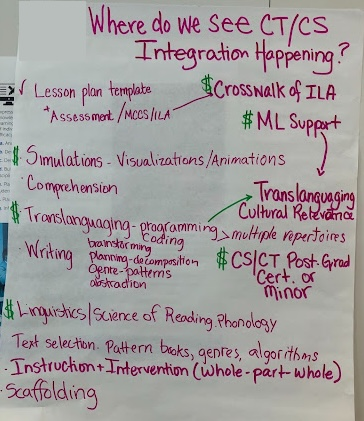 Where do we see CT/CS
Integration Happening?
✓ Lesson plan template
+Assessment/MCCS/ILA
$ Crosswalk of ILA
$ ML Support
$ Simulations - Visualizations/Animations
· Comprehension
Translanguaging
Cultural Relevance
$ Translanguaging - programming > multiple repertoires
coding
· Writing
brainstorming
planning-decomposition
genre-patterns
abstraction
$ CS/CT Post-Grad
Cert. or
Minor
$ Linguistics/Science of Reading. Phonology
Text selection. Pattern books, genres, algorithms
· Instruction + Intervention (whole-part-whole)
· Scaffolding